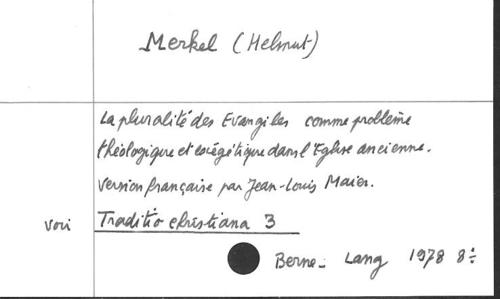 Merkel (Helmut)
La pluralité des Evangiles comme problème
théologique et exégétique dans l'Eglise ancienne.
Version française par Jean-Louis Maier.
voir Traditio christiana 3
Berne - Lang 1978 8÷